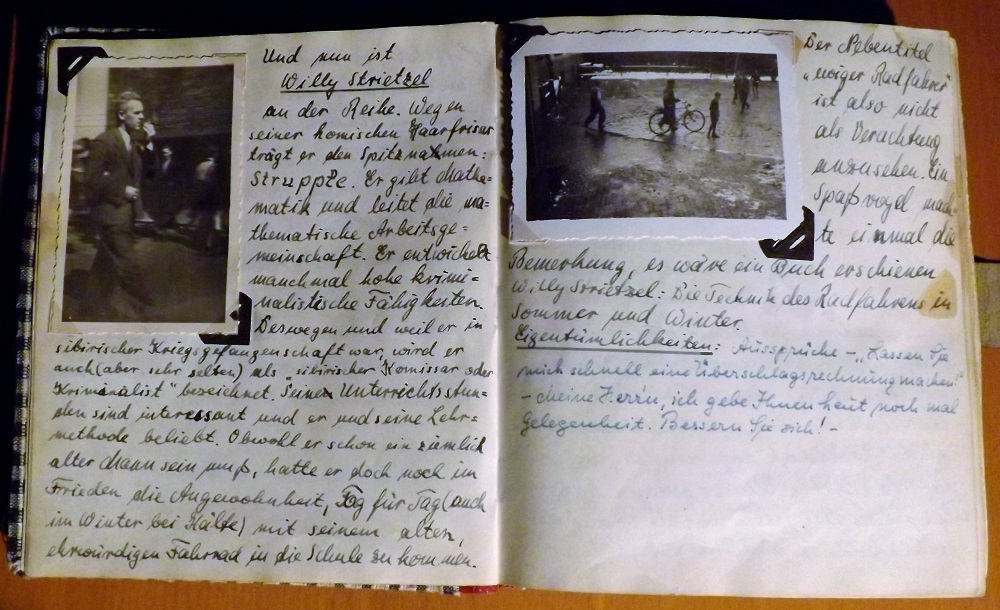 Und nun ist
Willy Strietzel
an der Reihe. Wegen
seiner komischen Haarfrisur
trägt er den Spitznahmen:
Struppie. Er gibt Mathe=
matik und leitet die ma=
thematische Arbeitsge=
meinschaft. Er entwickelt
manchmal hohe krimi=
nalistische Fähigkeiten.
Deswegen und weil er in
sibirischer Kriegsgefangenschaft war, wird er
auch (aber sehr selten) als "sibirischer Komissar oder
Kriminalist" bezeichnet. Seine Unterrichtsstun=
den sind interessant und er und seine Lehr=
methode beliebt. Obwohl er schon ein ziemlich
alter Mann sein muß, hatte er doch noch im
Frieden die Angewohnheit, Tag für Tag (auch
im Winter bei Kälte) mit seinem alten,
ehrwürdigen Fahrrad in die Schule zu kommen.
Der Nebentitel
"ewiger Radfahrer"
ist also nicht
als Verachtung
anzusehen. Ein
Spaßvogel mach=
te einmal die
Bemerkung, es wäre ein Buch erschienen
Willy Strietzel: Die Technik des Radfahrens in
Sommer und Winter.
Eigentümlichkeiten: Aussprüche – "Lassen Sie
mich schnell eine Überschlagsrechnung machen!"
– Meine Herrn, ich gebe Ihnen heut noch mal
Gelegenheit. Bessern Sie sich! –